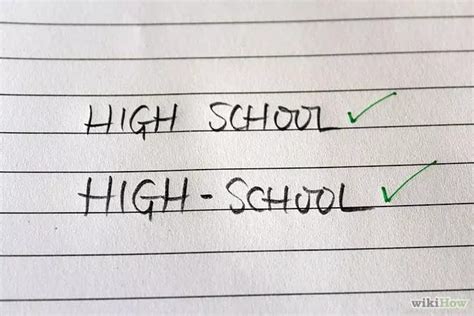 HIGH SCHOOL ✓
HIGH-SCHOOL ✓
wikiHow